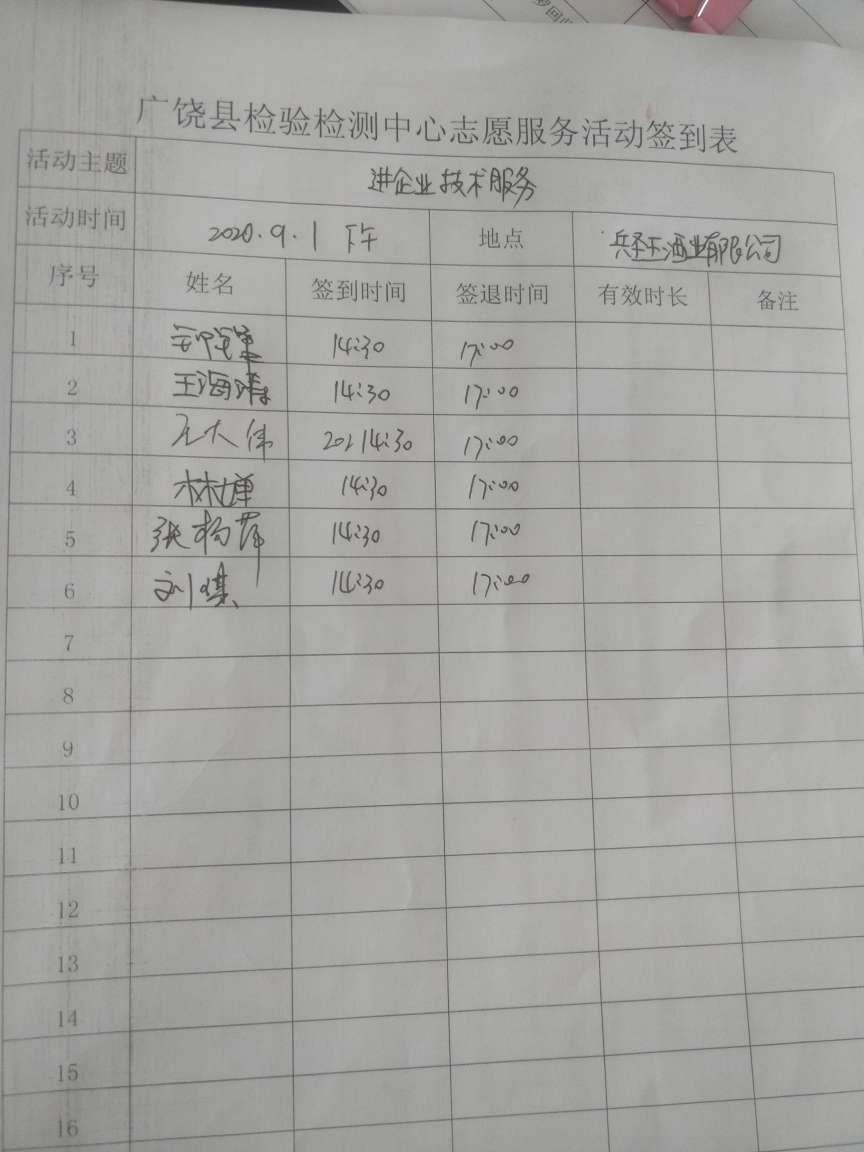 广饶县检验检测中心志愿服务活动签到表
活动主题 进企业技术服务
活动时间 2020.9.1 下午 地点 兵圣王酒业有限公司
序号 姓名 签到时间 签退时间 有效时长 备注
1 14:30 17:00
2 王海清 14:30 17:00
3 大伟 202 14:30 17:00
4 林 14:30 17:00
5 张杨 14:30 17:00
6 刘 14:30 17:00
7
8
9
10
11
12
13
14
15
16